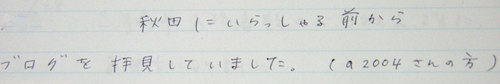 秋田にいらっしゃる前から
ブログを拝見していました。(a2004さんの方)